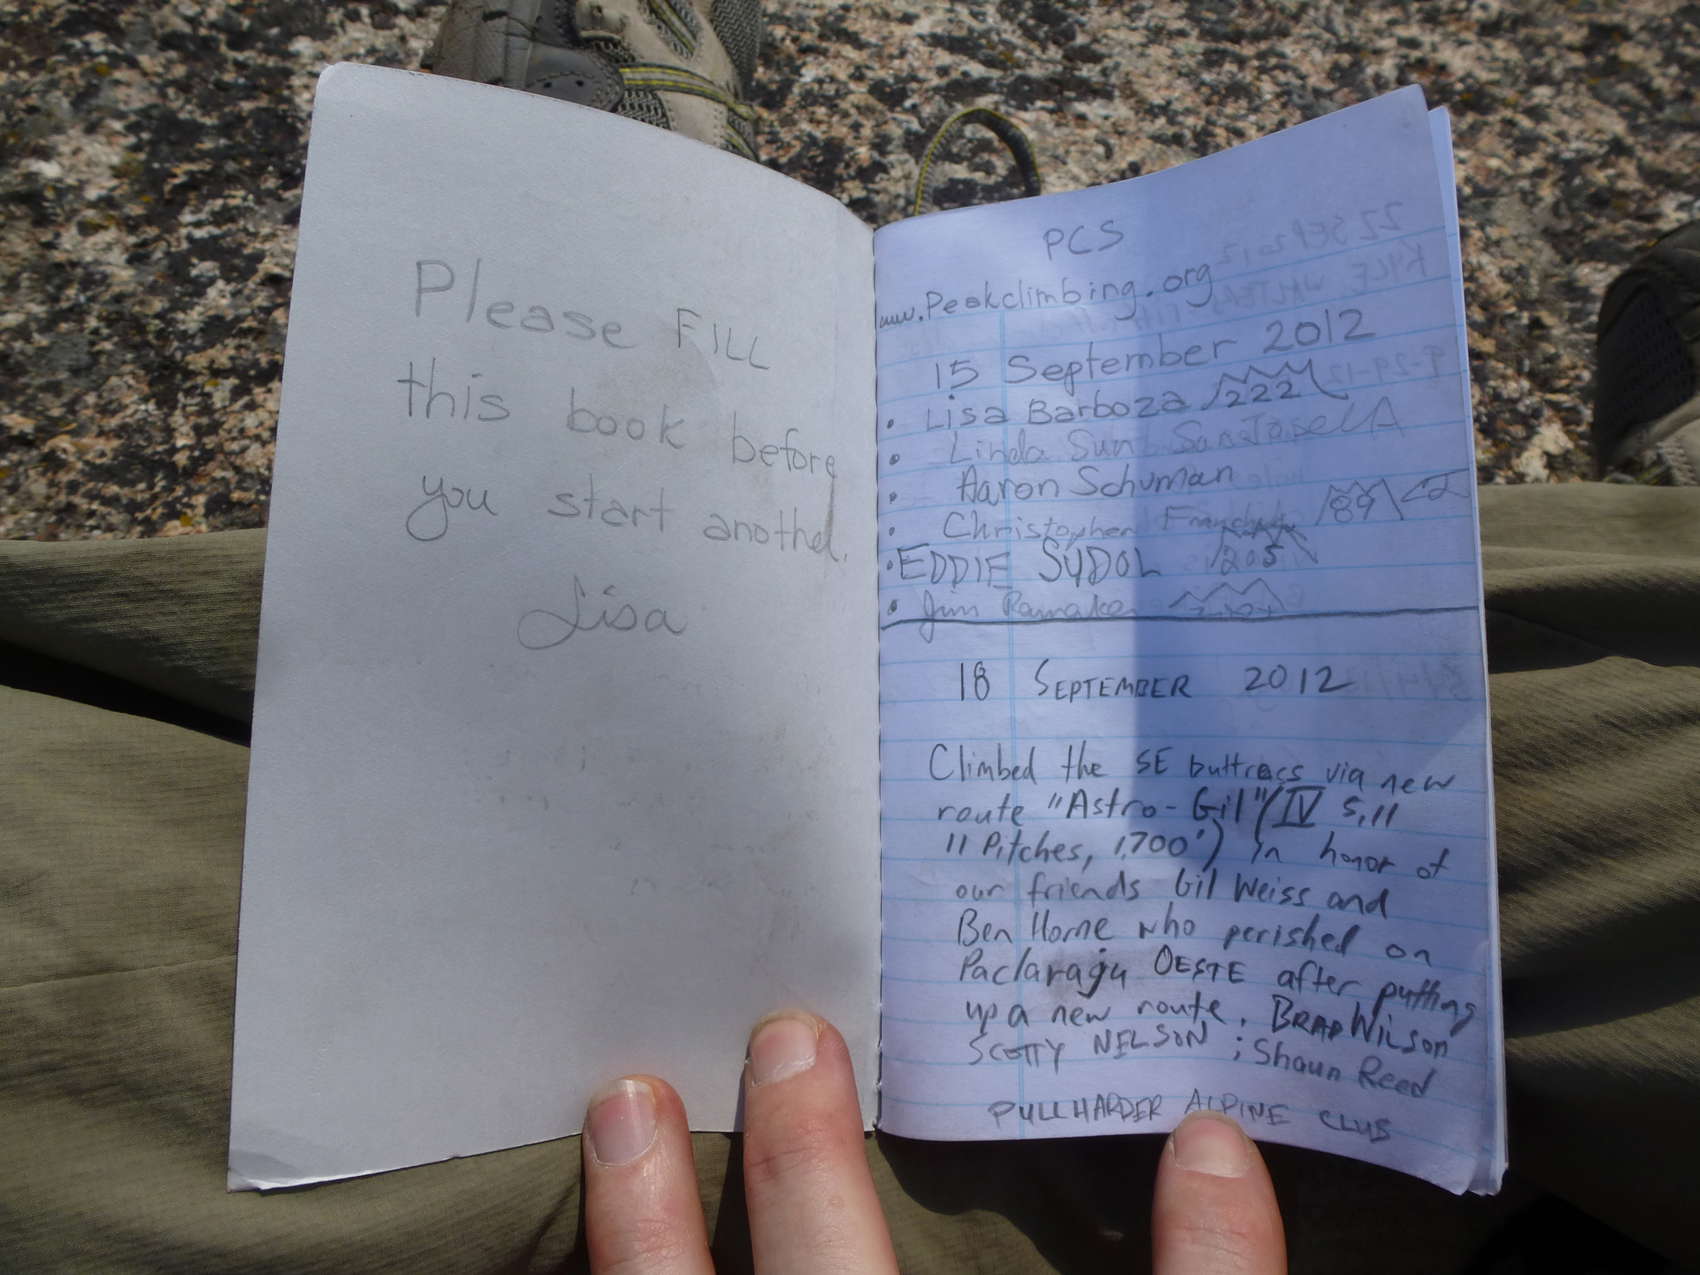 Please FILL
this book before
you start another.
Lisa
PCS
www.Peakclimbing.org
15 September 2012
Lisa Barboza 222
Linda Sun San Jose CA
Aaron Schuman
Christopher 89
EDDIE SYDOL 205
Jim Ramaker
18 SEPTEMBER 2012
Climbed the SE buttress via new
route "Astro-Gil" (IV 5.11
11 Pitches, 1,700') in honor of
our friends Gil Weiss and
Ben Horne who perished on
Paclaraju OESTE after putting
up a new route. BRAD WILSON
SCOTTY NELSON; Shaun Reed
PULLHARDER ALPINE CLUB